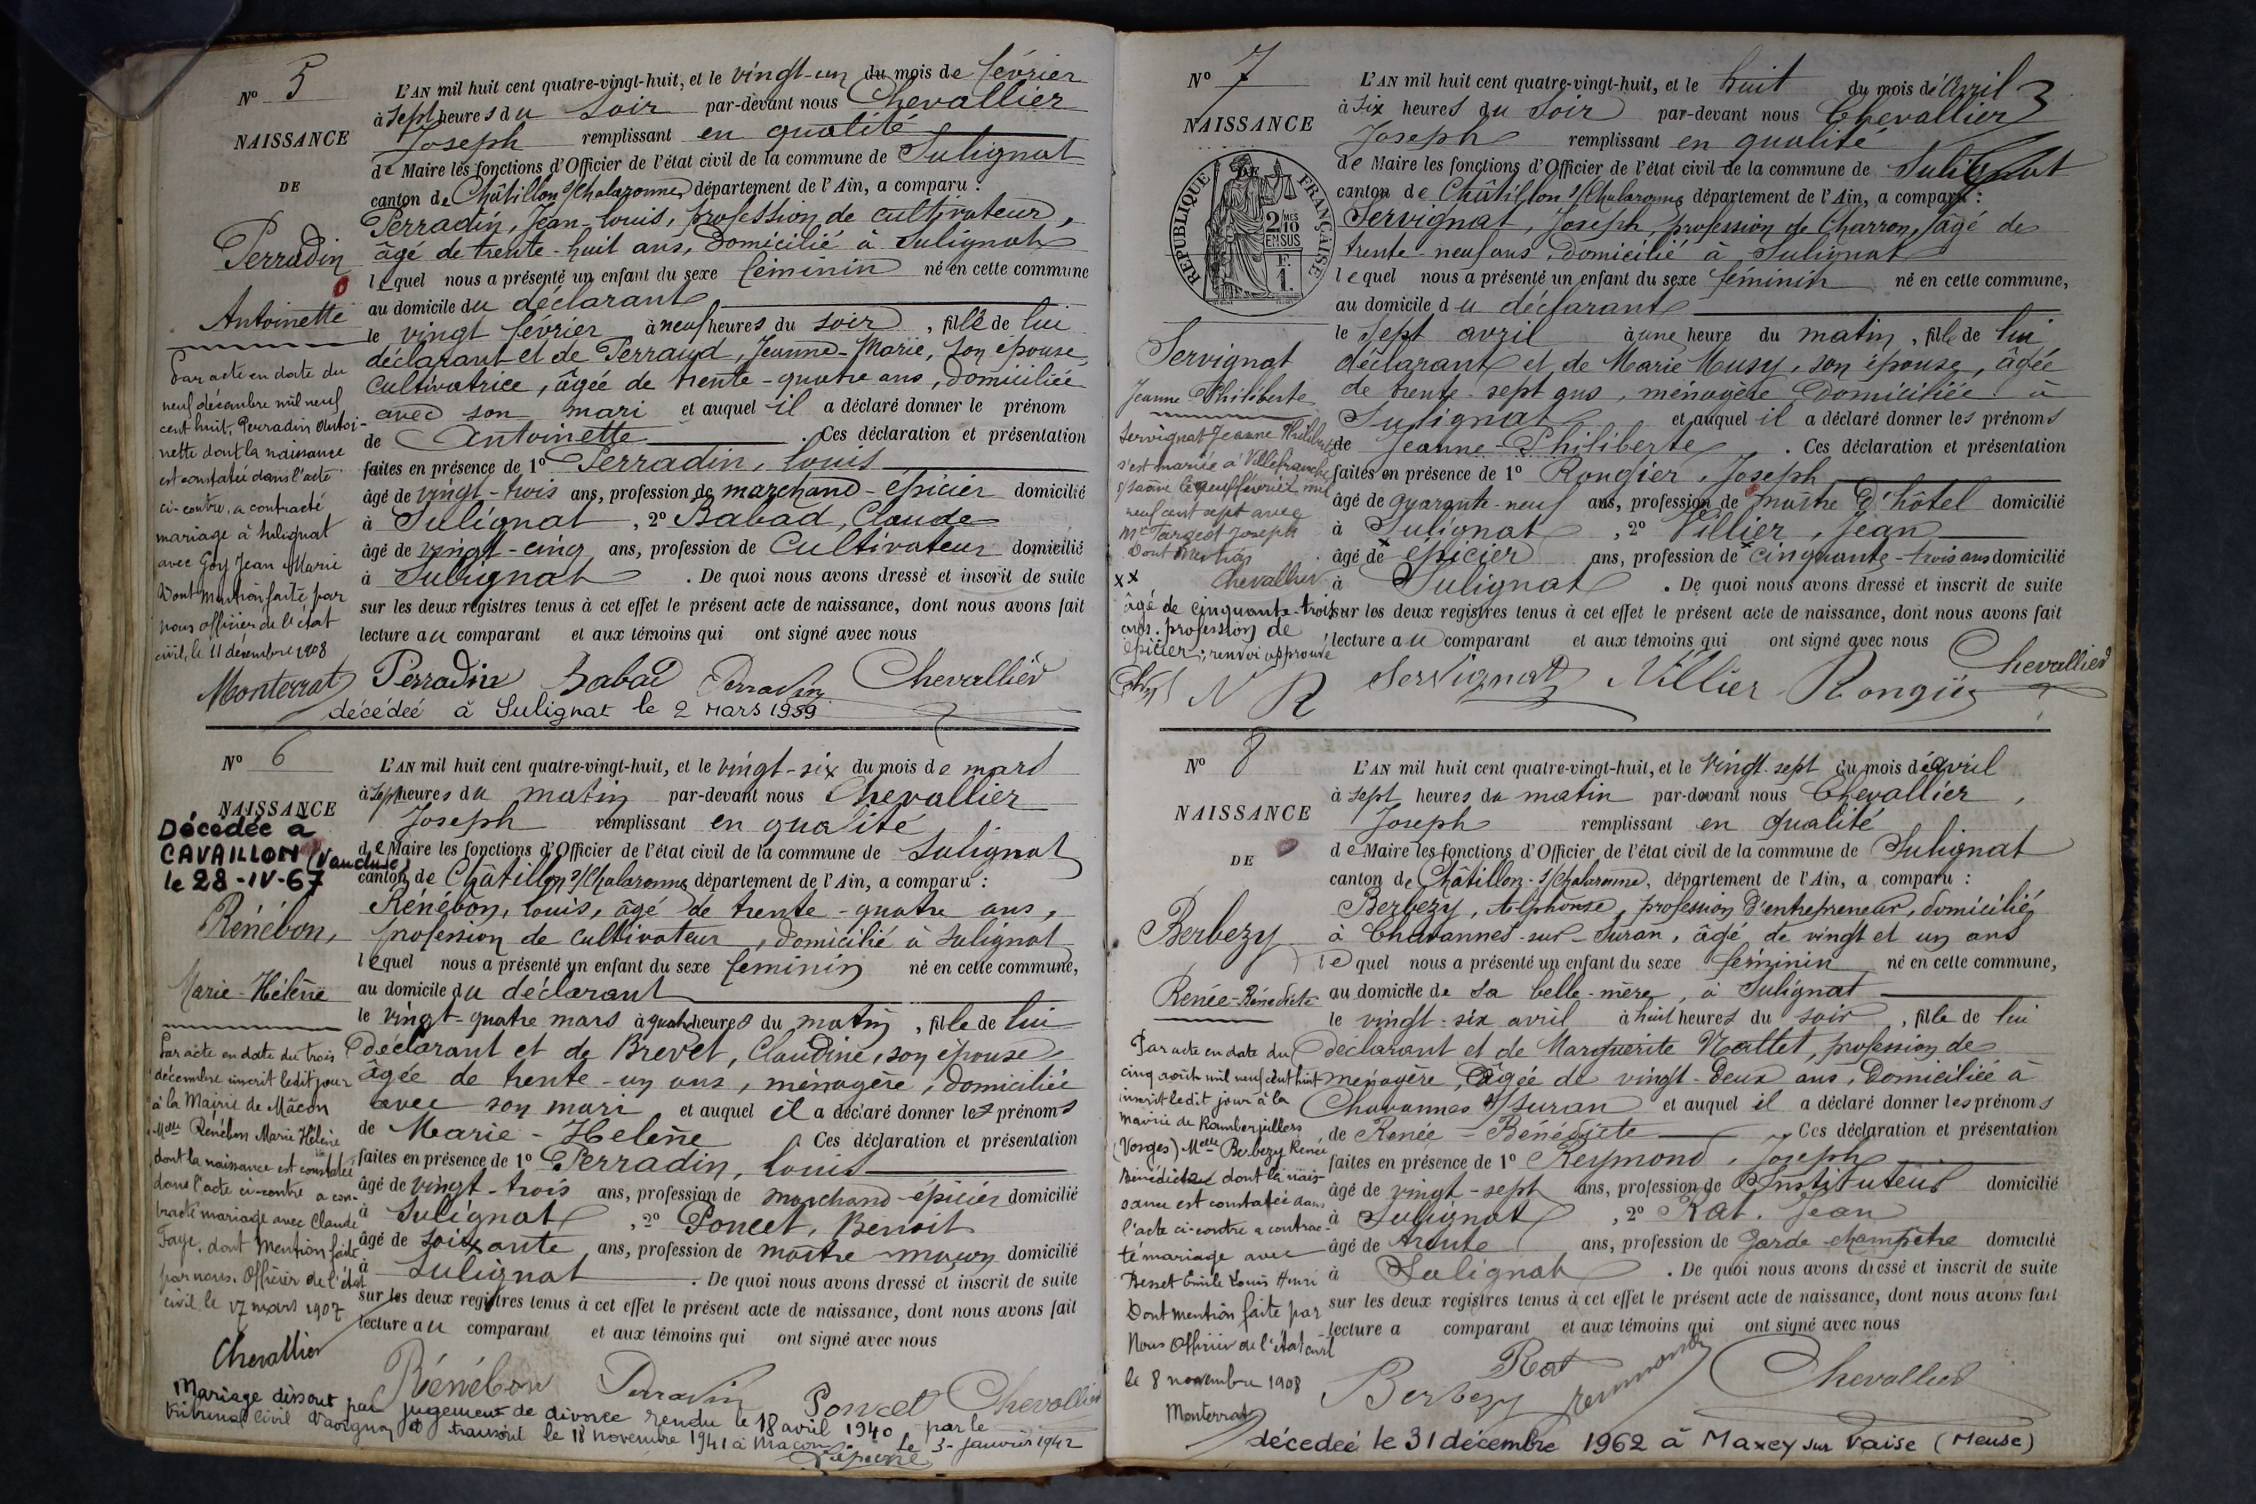 N° 5
NAISSANCE
DE
Perradin
Antoinette
Par acte en date du
neuf décembre mil neuf
cent huit, Perradin Antoi-
nette dont la naissance
est constatée dans l'acte
ci-contre, a contracté
mariage à Sulignat
avec Goy Jean Marie
Dont mention faite par
nous officier de l'état
civil, le 11 décembre 1908
Monterrat
L'AN mil huit cent quatre-vingt-huit, et le vingt-un du mois de février
à sept heures du soir par-devant nous Chevallier
Joseph remplissant en qualité
de Maire les fonctions d'Officier de l'état civil de la commune de Sulignat
canton de Châtillon s/Chalaronne, département de l'Ain, a comparu :
Perradin, Jean-Louis, profession de cultivateur,
âgé de trente-huit ans, domicilié à Sulignat
lequel nous a présenté un enfant du sexe féminin né en cette commune
au domicile du déclarant
le vingt février à neuf heures du soir, fille de lui
déclarant et de Perraud, Jeanne-Marie, son épouse,
cultivatrice, âgée de trente-quatre ans, domiciliée
avec son mari et auquel il a déclaré donner le prénom
de Antoinette. Ces déclaration et présentation
faites en présence de 1° Perradin, Louis
âgé de vingt-trois ans, profession de marchand-épicier domicilié
à Sulignat, 2° Babad, Claude
âgé de vingt-cinq ans, profession de cultivateur domicilié
à Sulignat. De quoi nous avons dressé et inscrit de suite
sur les deux registres tenus à cet effet le présent acte de naissance, dont nous avons fait
lecture au comparant et aux témoins qui ont signé avec nous
Perradin Babad Perradin Chevallier
décédée à Sulignat le 2 mars 1959
N° 6
NAISSANCE
Décédée à
CAVAILLON (Vaucluse)
le 28-IV-67
Rénébon,
Marie-Hélène
Par acte en date du trois
décembre inscrit ledit jour
à la Mairie de Mâcon
Melle Rénébon Marie Hélène
dont la naissance est constatée
dans l'acte ci-contre a con-
tracté mariage avec Claude
Faye, dont mention faite
par nous, Officier de l'état
civil le 17 mars 1907
Chevallier
L'AN mil huit cent quatre-vingt-huit, et le vingt-six du mois de mars
à sept heures du matin par-devant nous Chevallier
Joseph remplissant en qualité
de Maire les fonctions d'Officier de l'état civil de la commune de Sulignat
canton de Châtillon s/Chalaronne département de l'Ain, a comparu :
Rénébon, Louis, âgé de trente-quatre ans,
profession de cultivateur, domicilié à Sulignat
lequel nous a présenté un enfant du sexe féminin né en cette commune,
au domicile du déclarant
le vingt-quatre mars à quatre heures du matin, fille de lui
déclarant et de Brevet, Claudine, son épouse
âgée de trente-un ans, ménagère, domiciliée
avec son mari et auquel il a déclaré donner les prénoms
de Marie-Hélène. Ces déclaration et présentation
faites en présence de 1° Perradin, Louis
âgé de vingt-trois ans, profession de marchand-épicier domicilié
à Sulignat, 2° Poncet, Benoit
âgé de soixante ans, profession de maître maçon domicilié
à Sulignat. De quoi nous avons dressé et inscrit de suite
sur les deux registres tenus à cet effet le présent acte de naissance, dont nous avons fait
lecture au comparant et aux témoins qui ont signé avec nous
Rénébon Perradin Poncet Chevallier
Mariage dissout par jugement de divorce rendu le 18 avril 1940 par le
tribunal civil d'Avignon et transcrit le 18 novembre 1941 à Macon. Le 3 janvier 1942
N° 7
NAISSANCE
DE
RÉPUBLIQUE FRANÇAISE
2 MES 10 EN SUS
F. 1.
Servignat
Jeanne Philiberte
Servignat Jeanne Philiberte
s'est mariée à Villefranche
s/Saône le neuf février mil
neuf cent sept avec
Mr Targest Joseph
Dont mention
Chevallier
xx
âgé de cinquante-trois
ans, profession de
épicier; renvoi approuvé
L'AN mil huit cent quatre-vingt-huit, et le huit du mois d'Avril
à six heures du soir par-devant nous Chevallier
Joseph remplissant en qualité
de Maire les fonctions d'Officier de l'état civil de la commune de Sulignat
canton de Châtillon s/Chalaronne département de l'Ain, a comparu :
Servignat, Joseph, profession de Charron, âgé de
trente-neuf ans, domicilié à Sulignat
lequel nous a présenté un enfant du sexe féminin né en cette commune,
au domicile du déclarant
le sept avril à une heure du matin, fille de lui
déclarant et de Marie Musy, son épouse, âgée
de trente-sept ans, ménagère domiciliée à
Sulignat et auquel il a déclaré donner les prénoms
de Jeanne-Philiberte. Ces déclaration et présentation
faites en présence de 1° Rongier, Joseph
âgé de quarante-neuf ans, profession de maître d'hôtel domicilié
à Sulignat, 2° Villier, Jean
âgé de épicier ans, profession de cinquante-trois ans domicilié
à Sulignat. De quoi nous avons dressé et inscrit de suite
sur les deux registres tenus à cet effet le présent acte de naissance, dont nous avons fait
lecture au comparant et aux témoins qui ont signé avec nous
Servignat Villier Rongier Chevallier
N° 8
NAISSANCE
DE
Berbezy
Renée-Bénédicte
Par acte en date du
cinq août mil neuf cent huit
inscrit ledit jour à la
mairie de Rambervillers
(Vosges) Melle Berbezy Renée
Bénédicte dont la nais-
sance est constatée dans
l'acte ci-contre a contrac-
té mariage avec
Besset Emile Louis Henri
Dont mention faite par
Nous Officier de l'état civil
le 8 novembre 1908
Monterrat
L'AN mil huit cent quatre-vingt-huit, et le vingt-sept du mois d'avril
à sept heures du matin par-devant nous Chevallier,
Joseph remplissant en qualité
de Maire les fonctions d'Officier de l'état civil de la commune de Sulignat
canton de Châtillon-s/Chalaronne, département de l'Ain, a comparu :
Berbezy, Alphonse, profession d'entrepreneur, domicilié
à Chavannes-sur-Suran, âgé de vingt et un ans
lequel nous a présenté un enfant du sexe féminin né en cette commune,
au domicile de sa belle-mère, à Sulignat
le vingt-six avril à huit heures du soir, fille de lui
déclarant et de Marguerite Nallet, profession de
ménagère, âgée de vingt-deux ans, domiciliée à
Chavannes s/Suran et auquel il a déclaré donner les prénoms
de Renée-Bénédicte. Ces déclaration et présentation
faites en présence de 1° Reymond, Joseph
âgé de vingt-sept ans, profession de Instituteur domicilié
à Sulignat, 2° Rat, Jean
âgé de trente ans, profession de Garde champêtre domicilié
à Sulignat. De quoi nous avons dressé et inscrit de suite
sur les deux registres tenus à cet effet le présent acte de naissance, dont nous avons fait
lecture a comparant et aux témoins qui ont signé avec nous
Berbezy Rat Reymond Chevallier
décedeé le 31 décembre 1962 à Maxey sur Vaise (Meuse)